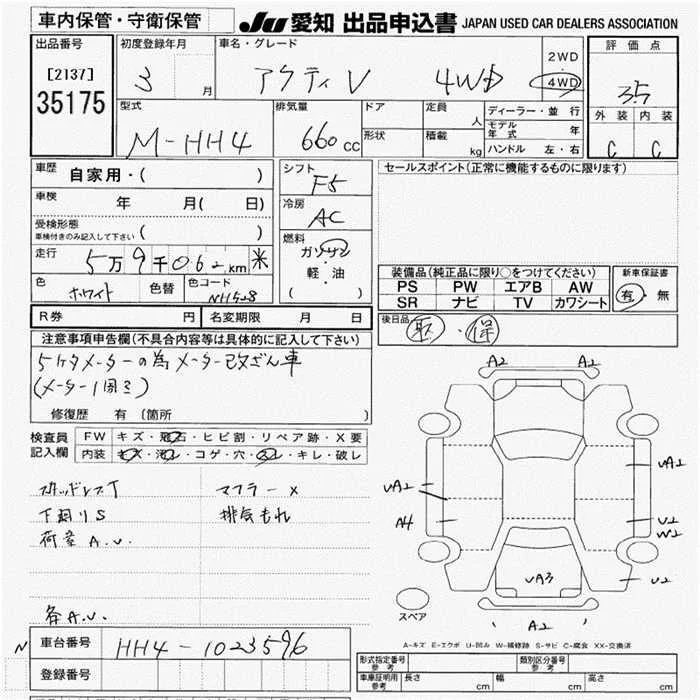 車内保管・守衛保管
JU 愛知 出品申込書 JAPAN USED CAR DEALERS ASSOCIATION
出品番号
[2137]
35175
初度登録年月
3 月
車名・グレード
アクティV 4WD
2WD
・
4WD
評価点
3.5
外装 内装
C C
型式
M-HH4
排気量
660cc
ドア
形状
定員 人
積載 kg
ディーラー・並行
モデル年式 年
ハンドル 左・右
車歴 自家用・( )
車検 年 月( 日)
受検形態
車検付きのみ記入して下さい ( )
走行 5万9千062km 米
色 ホワイト 色替 色コード NH528
シフト
F5
冷房
AC
燃料
ガソリン
軽・油
( )
セールスポイント(正常に機能するものに限ります)
装備品(純正品に限り○をつけてください)
PS PW エアB AW
SR ナビ TV カワシート
新車保証書
有・無
R券 円 名変期限 月 日
後日品 取・保
注意事項申告欄(不具合内容等は具体的に記入して下さい)
5ケタメーターの為メーター改ざん車
(メーター1回り)
修復歴 有 (箇所 )
検査員
記入欄
FW キズ・飛石・ヒビ割・リペア跡・X要
内装 キズ・汚レ・コゲ・穴・スレ・キレ・破レ
マフラーX
下回りS 排気もれ
荷室A.U.
各A.U.
A2 A2
UA2
UA2
A4
U2
W2
U2
UA3
A2
スペア
A-キズ E-エクボ U-凹み W-補修跡 S-サビ C-腐食 XX-交換済
N
車台番号 HH4-1023596
登録番号
形式指定番号
参考
類別区分番号
参考
車庫証明用
参考
長さ cm 幅 cm 高さ cm